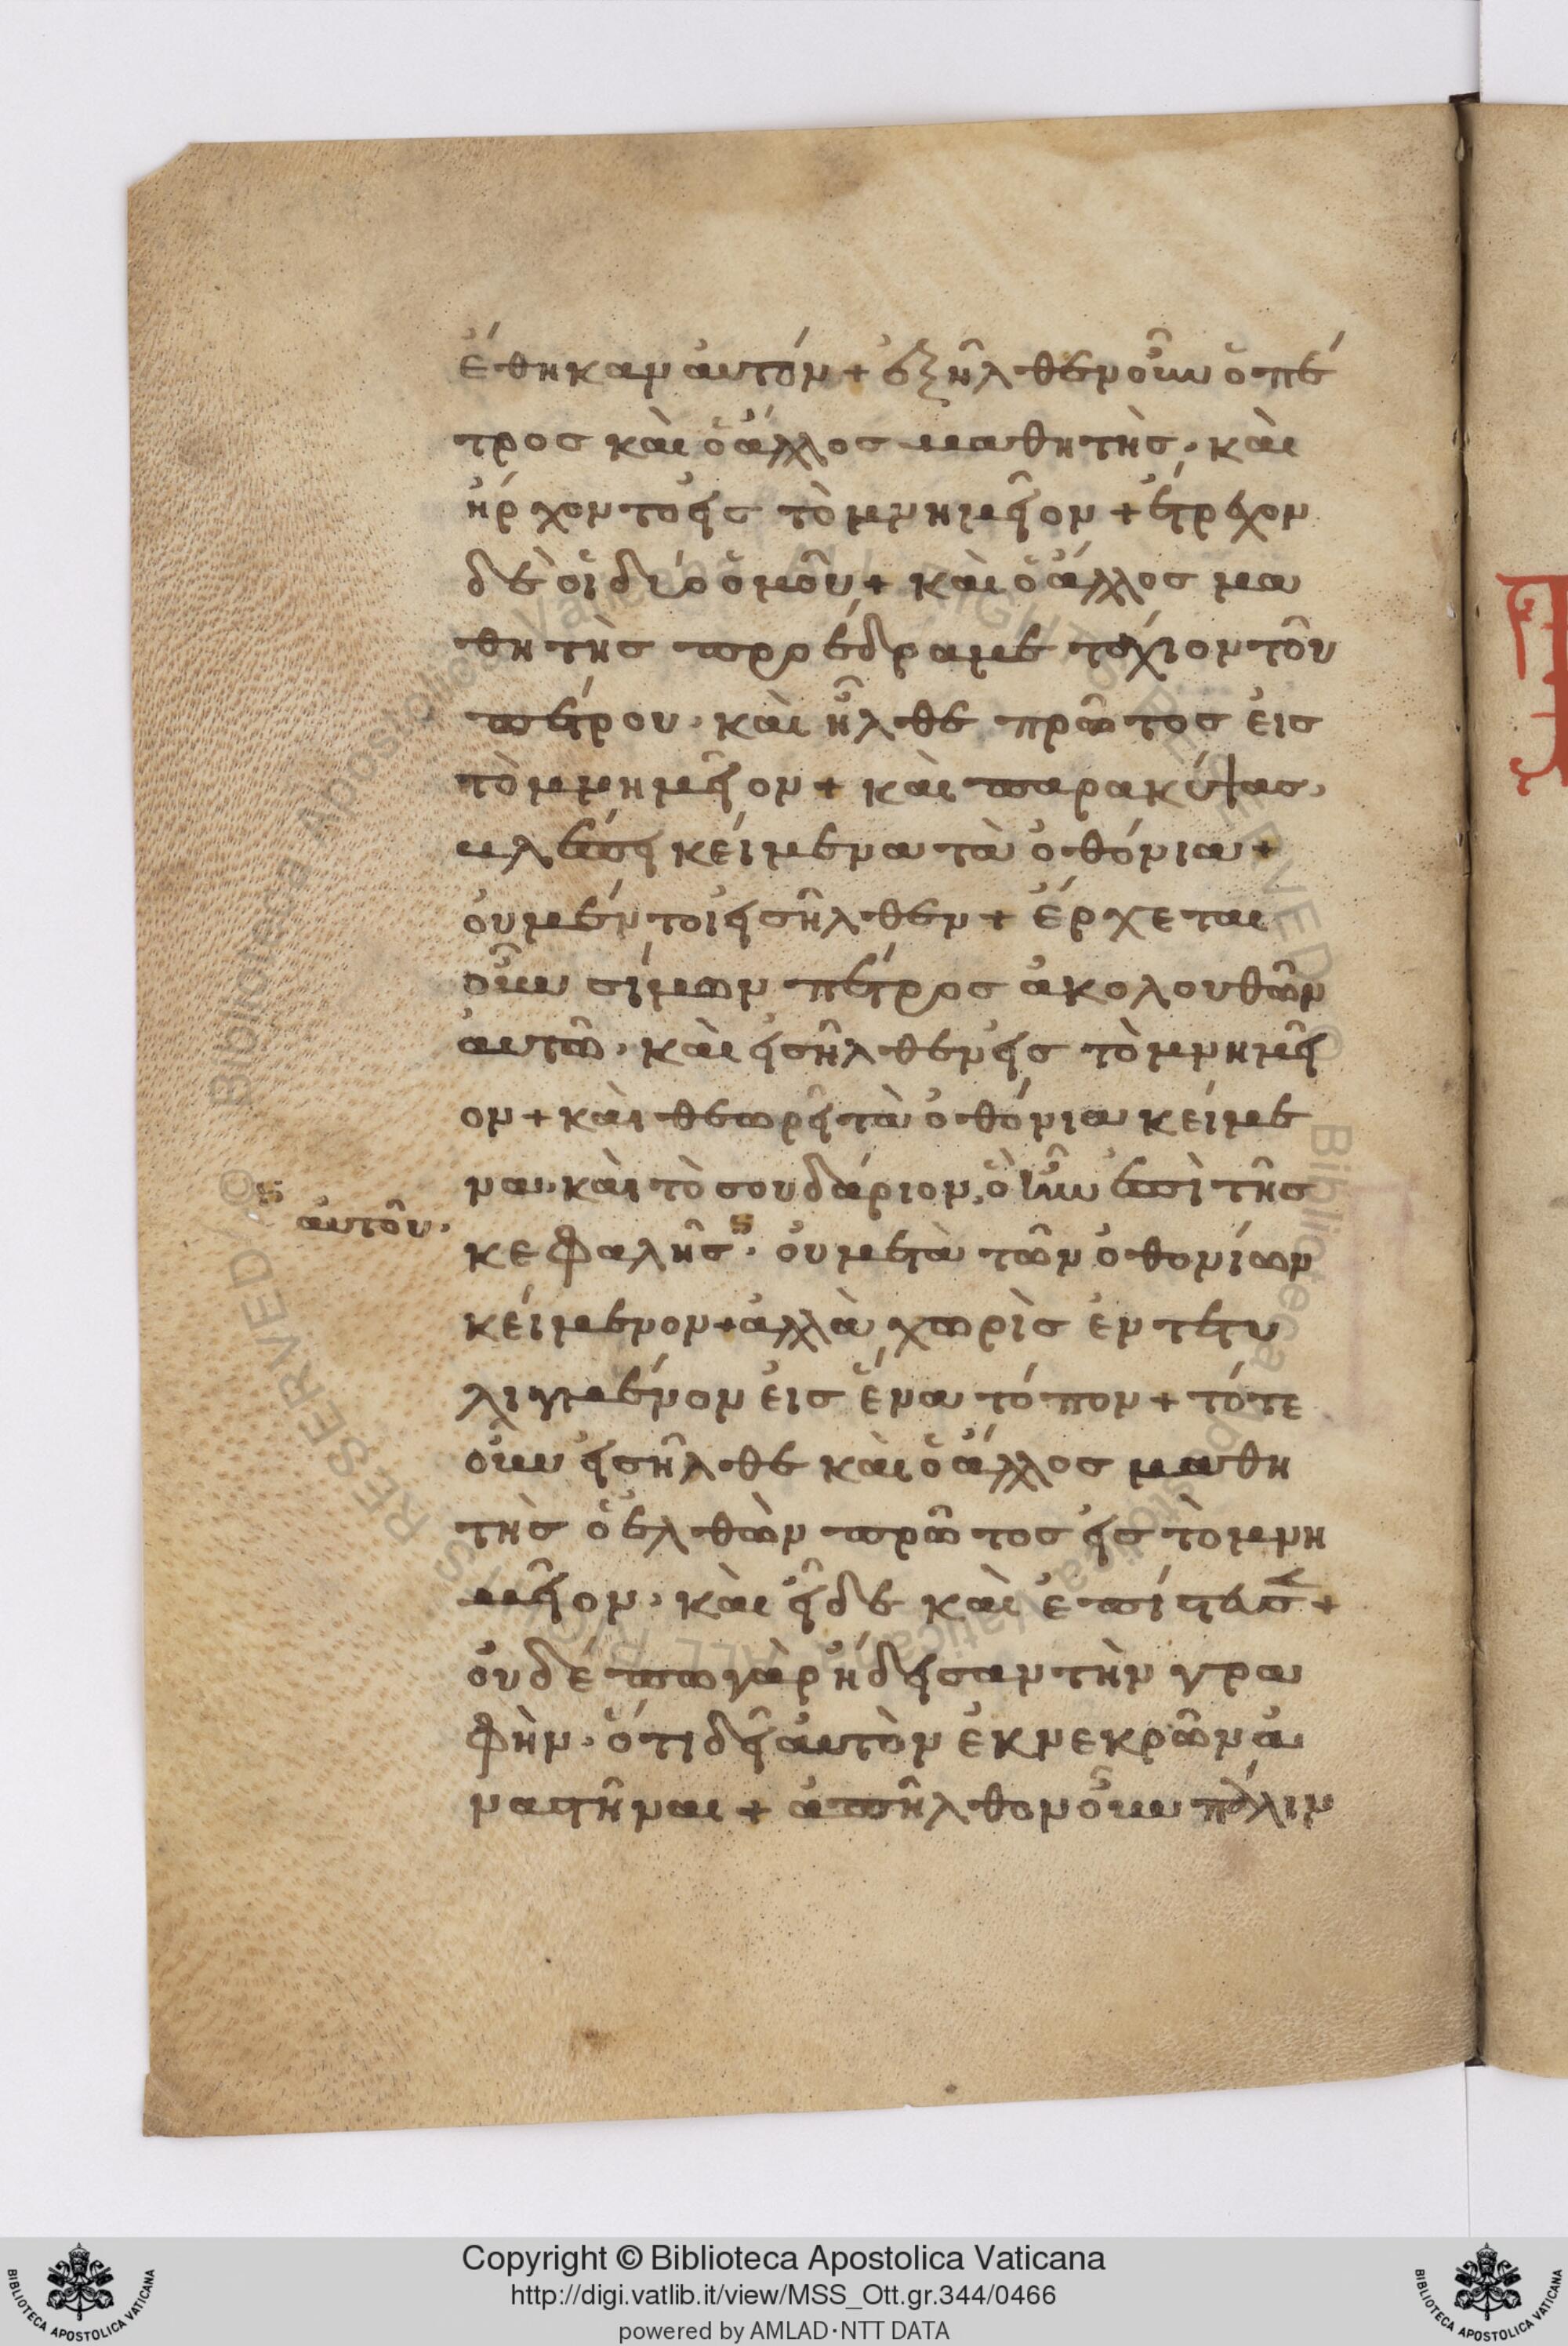 ἔθηκαν αὐτόν + ἐξῆλθεν οὖν ὁ πέ
τρος καὶ ὁ ἄλλος μαθητὴς · καὶ
ἤρχοντο εἰς τὸ μνημεῖον + ἔτρεχον
δὲ οἱ δύο ὁμοῦ + καὶ ὁ ἄλλος μα
θητὴς προέδραμε τάχιον τοῦ
πέτρου · καὶ ἦλθε πρῶτος εἰς
τὸ μνημεῖον + καὶ παρακύψας ·
βλέπει κείμενα τὰ ὀθόνια +
οὐ μέντοι εἰσῆλθεν + ἔρχεται
οὖν σίμων πέτρος ἀκολουθῶν
αὐτῶ · καὶ εἰσῆλθεν εἰς τὸ μνημεῖ
ον + καὶ θεωρεῖ τὰ ὀθόνια κείμε
να · καὶ τὸ σουδάριον, ὃ ἦν ἐπὶ τῆς
αὐτοῦ ·
κεφαλῆς · οὐ μετὰ τῶν ὀθονίων
κείμενον + ἀλλὰ χωρὶς ἐντετυ
λιγμένον εἰς ἕνα τόπον + τότε
οὖν εἰσῆλθε καὶ ὁ ἄλλος μαθη
τὴς ὁ ἐλθὼν πρῶτος εἰς τὸ μνη
μεῖον · καὶ εἶδε καὶ ἐπίστευσεν +
οὐδέπω γὰρ ἤδεισαν τὴν γρα
φὴν · ὅτι δεῖ αὐτὸν ἐκ νεκρῶν ἀ
ναστῆναι + ἀπῆλθον οὖν πάλιν
Copyright © Biblioteca Apostolica Vaticana
http://digi.vatlib.it/view/MSS_Ott.gr.344/0466
powered by AMLAD·NTT DATA